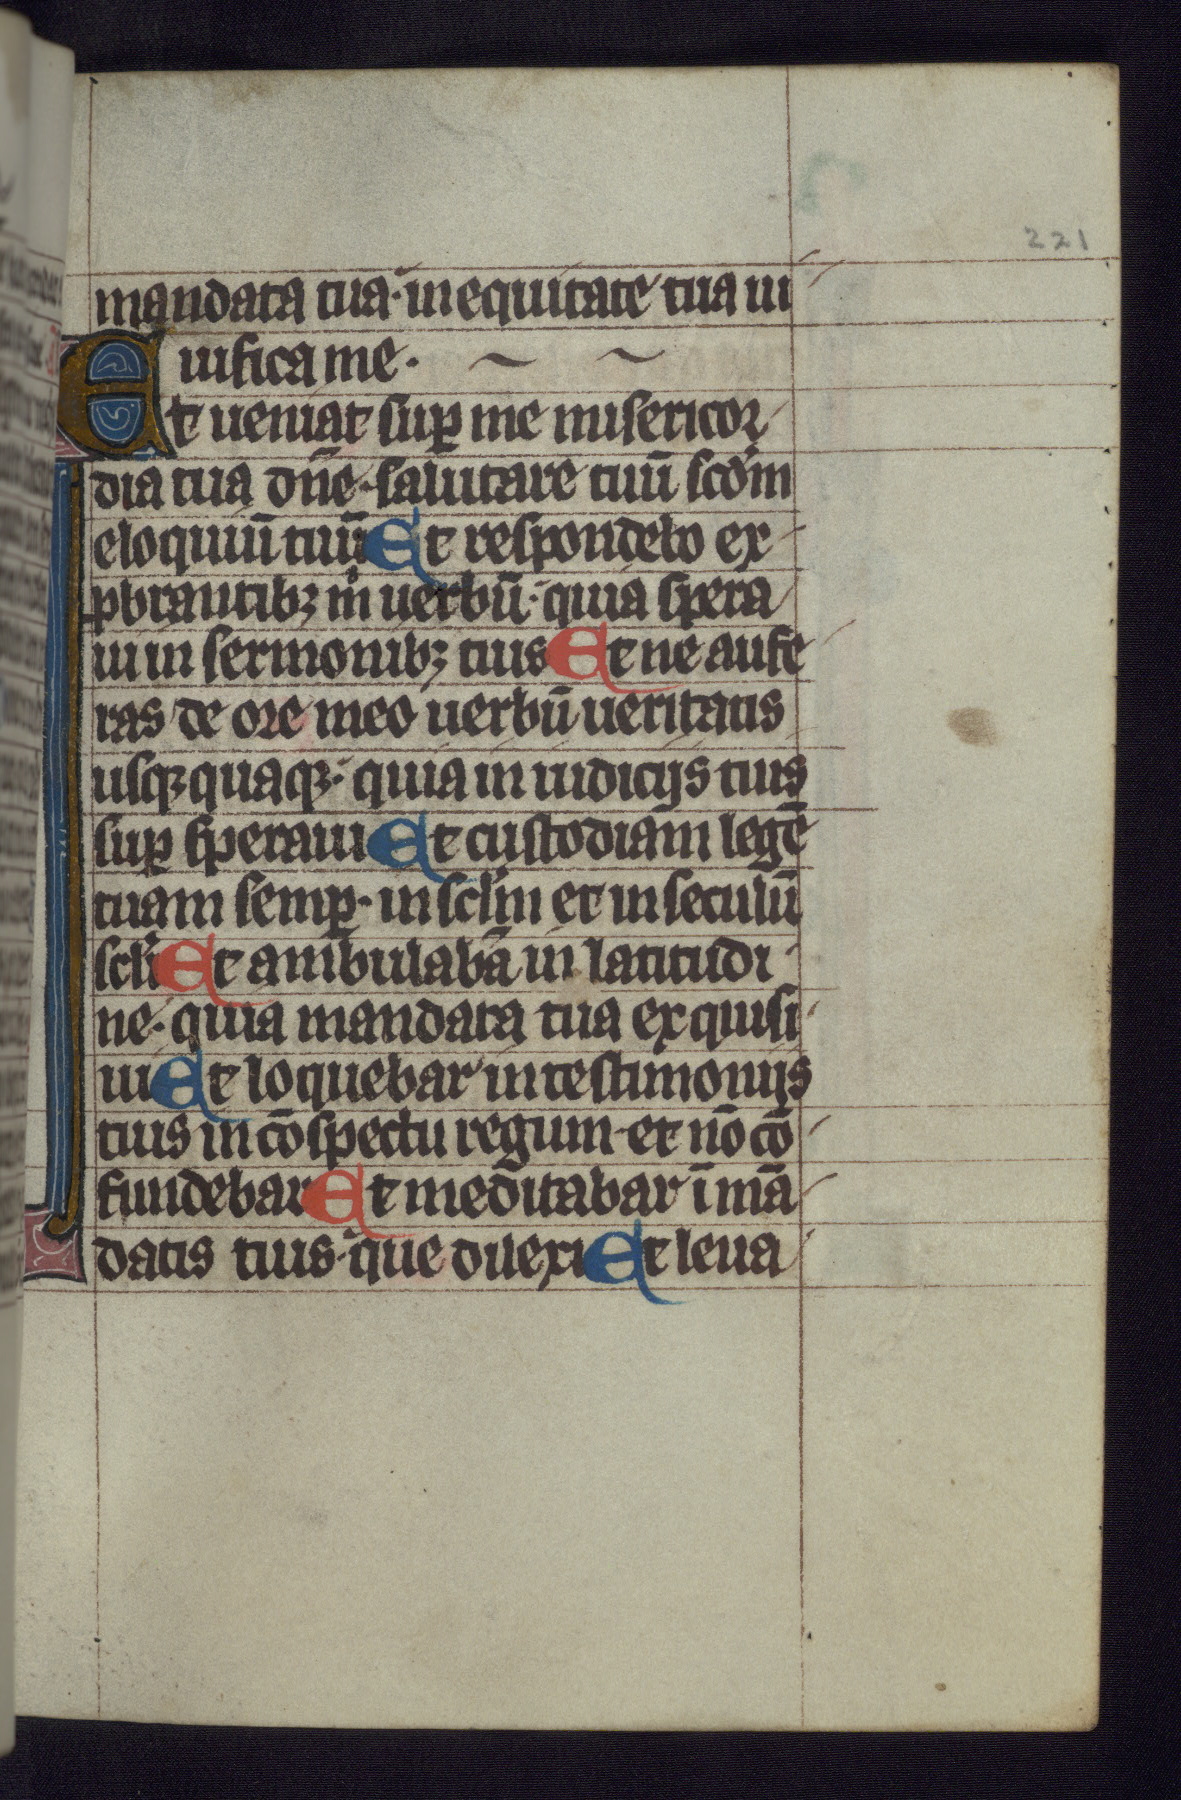 221
mandata tua· in equitate tua ui
uifica me·
Et ueniat sup me misericor
dia tua dn̄e· salutare tuū scdm
eloquiū tuū Et respondebo ex
pbrantibꝫ m uerbū· quia spera
ui in sermonibꝫ tuis Et ne aufe
ras de ore meo uerbū ueritatis
usqꝫ quaqꝫ· quia in iudicijs tuis
sup speraui Et custodiam legē
tuam semp· in sclm et in seculū
scli Et ambulabā in latitudi
ne· quia mandata tua exquisi
ui Et loquebar in testimonijs
tuis in cōspectu regum· et nō cō
fundebar Et meditabar ī mā
datis tuis· que dilexi Et leua